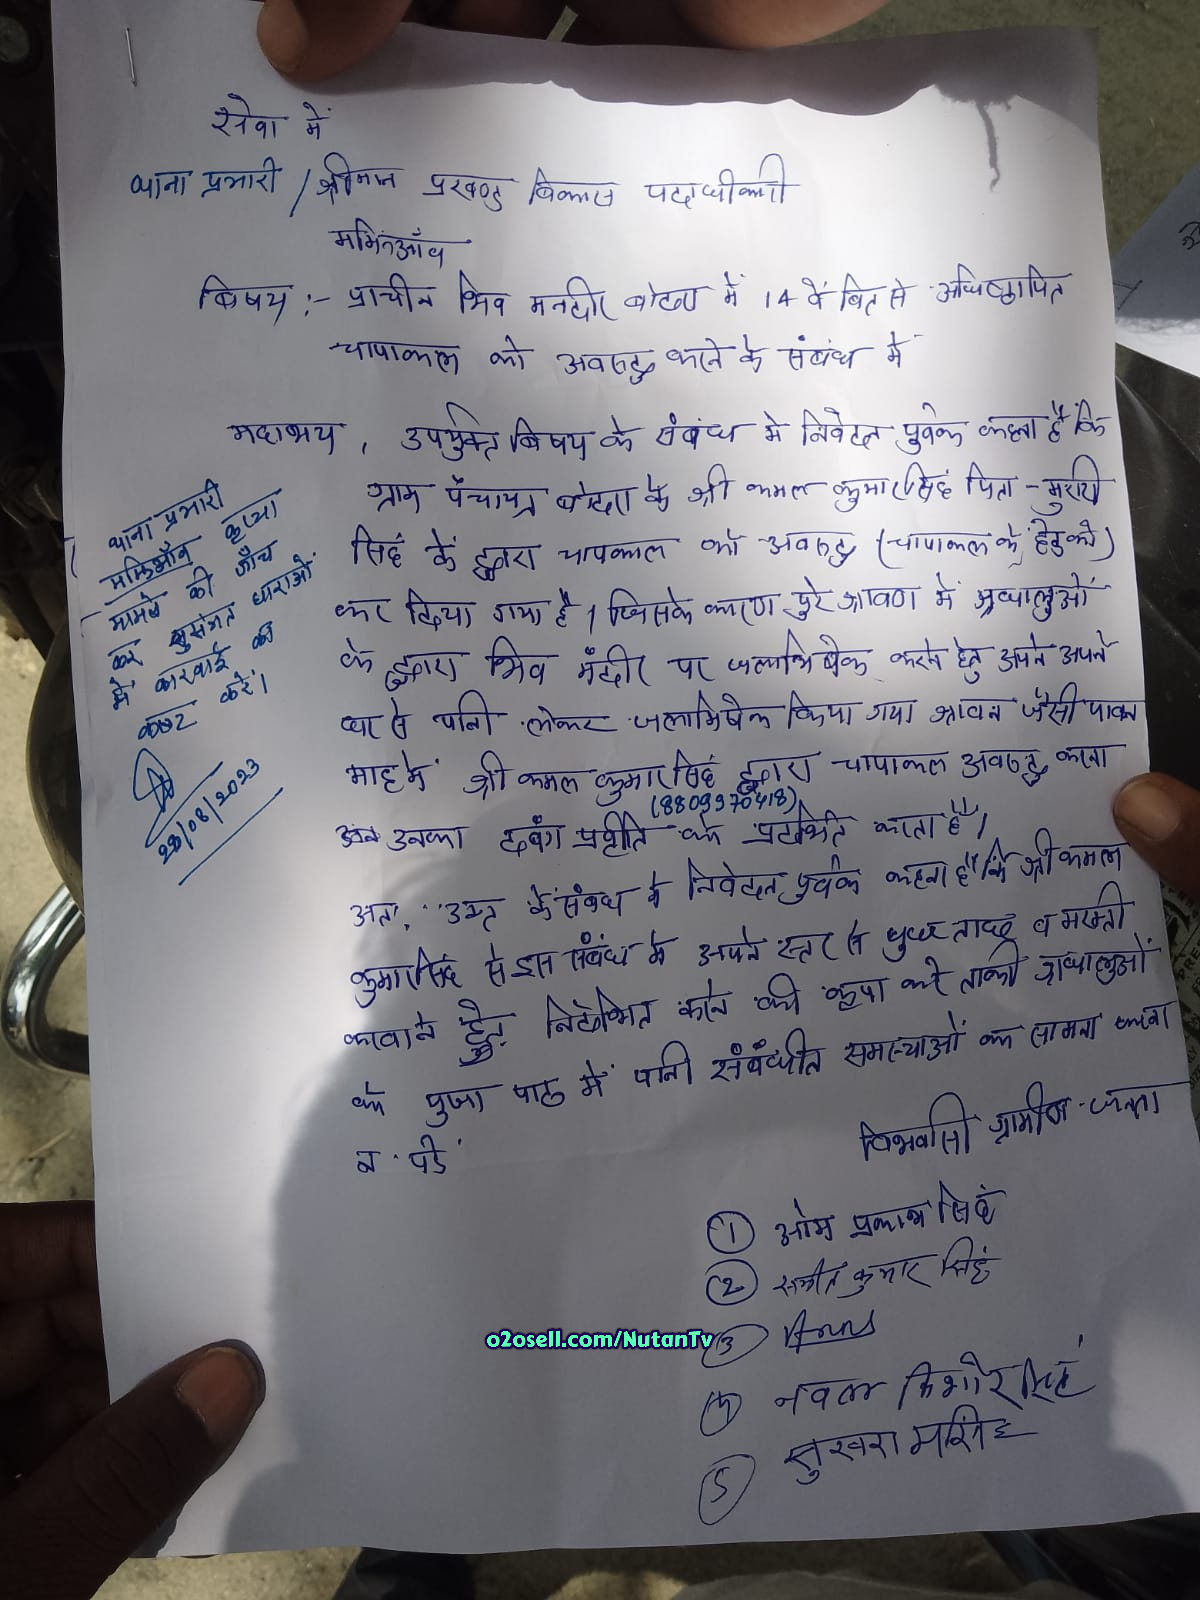 सेवा में
थाना प्रभारी / श्रीमान प्रखण्ड विकास पदाधीकारी
मझिआँव
विषय :- प्राचीन शिव मनदीर बोदरा में 14 वें वित से अधिष्ठापित
चापाकल को अवरुद्ध करने के संबंध में
महाशय, उपर्युक्त विषय के संबंध मे निवेदन पुर्वक कहना है कि
ग्राम पंचायत बोदरा के श्री कमल कुमार सिंह पिता - मुरारी
सिंह के द्वारा चापाकल को अवरुद्ध (चापाकल के हेड को)
कर दिया गया है। जिसके कारण पुरे श्रावण में श्रध्धालुओं
के द्वारा शिव मंदीर पर जलाभिषेक करने हेतु अपने अपने
घर से पानी लेकर जलाभिषेक किया गया श्रावन जैसी पावन
माह में श्री कमल कुमार सिंह द्वारा चापाकल अवरुद्ध करना
(8809970418)
उनका दबंग प्रवृति को प्रदर्शित करता है।
अतः उक्त के संबंध में निवेदन पुर्वक कहना है कि श्री कमल
कुमार सिंह से इस संबंध मे अपने स्तर से पुछ ताछ व मरम्ती
करवाने हेतु निर्देशित करने की कृपा करे ताकी श्रध्धालुओं
को पुजा पाठ में पानी संबंधीत समस्याओं का सामना करना
न पड़े
विश्वासी ग्रामीण जनता
थाना प्रभारी
मझिआँव कृपया
मामले की जाँच
कर सुसंगत धाराओं
में कारवाई की
कष्ट करें।
29/08/2023
① ओम प्रकाश सिंह
② कुमार सिंह
③
④ नवल किशोर सिंह
⑤ सुखराम सिंह
o2osell.com/NutanTv